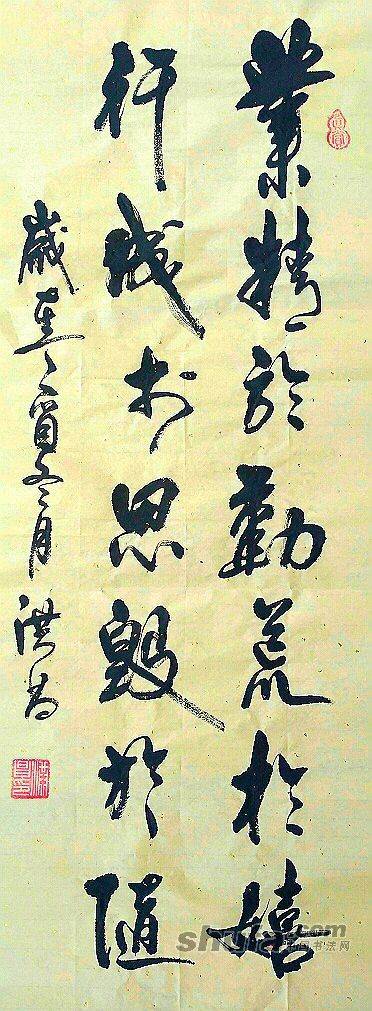 業精於勤荒於嬉
行成於思毀於隨
歲在丁酉冬月 洪
中国书法网